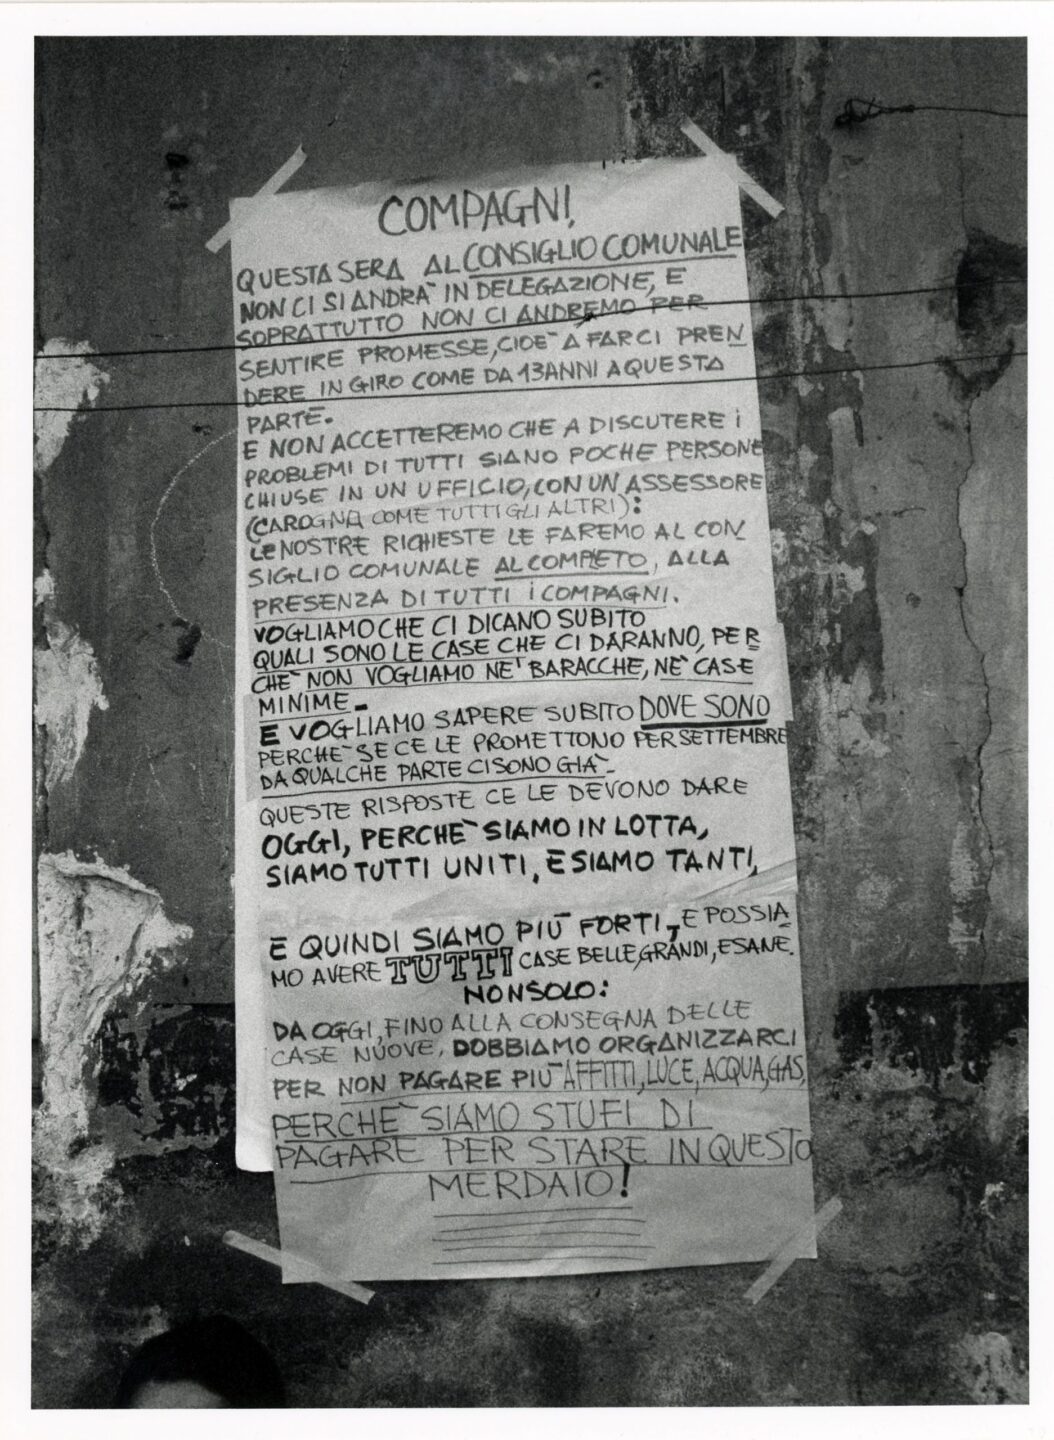 COMPAGNI,
QUESTA SERA AL CONSIGLIO COMUNALE
NON CI SI ANDRA' IN DELEGAZIONE, E
SOPRATTUTTO NON CI ANDREMO PER
SENTIRE PROMESSE, CIOE' A FARCI PREN
DERE IN GIRO COME DA 13 ANNI A QUESTA
PARTE.
E NON ACCETTEREMO CHE A DISCUTERE i
PROBLEMI DI TUTTI SIANO POCHE PERSONE
CHIUSE IN UN UFFICIO, CON UN ASSESSORE
(CAROGNA COME TUTTI GLI ALTRI):
LE NOSTRE RICHIESTE LE FAREMO AL CON
SIGLIO COMUNALE AL COMPLETO, ALLA
PRESENZA DI TUTTI i COMPAGNI.
VOGLIAMO CHE CI DICANO SUBITO
QUALI SONO LE CASE CHE CI DARANNO, PER
CHE' NON VOGLIAMO NE' BARACCHE, NE' CASE
MINIME.
E VOGLIAMO SAPERE SUBITO DOVE SONO
PERCHE' SE CE LE PROMETTONO PER SETTEMBRE
DA QUALCHE PARTE CI SONO GIA'.
QUESTE RISPOSTE CE LE DEVONO DARE
OGGI, PERCHE' SIAMO IN LOTTA,
SIAMO TUTTI UNITI, E SIAMO TANTI,
E QUINDI SIAMO PIU' FORTI, E POSSIA
MO AVERE TUTTI CASE BELLE, GRANDI, E SANE.
NON SOLO:
DA OGGI, FINO ALLA CONSEGNA DELLE
CASE NUOVE, DOBBIAMO ORGANIZZARCI
PER NON PAGARE PIU' AFFITTI, LUCE, ACQUA, GAS,
PERCHE' SIAMO STUFI DI
PAGARE PER STARE IN QUESTO
MERDAIO!